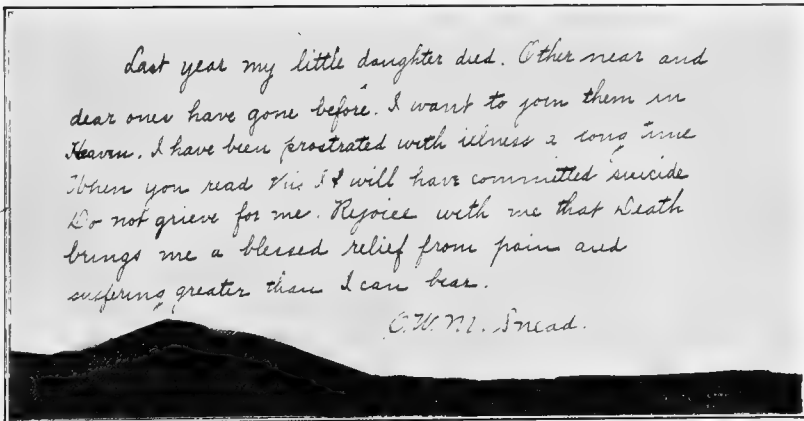 Last year my little daughter died. Other near and
dear ones have gone before. I want to join them in
Heaven. I have been prostrated with illness a long time
When you read this I will have committed suicide
Do not grieve for me. Rejoice with me that Death
brings me a blessed relief from pain and
suffering greater than I can bear.
O.W.M. Snead.